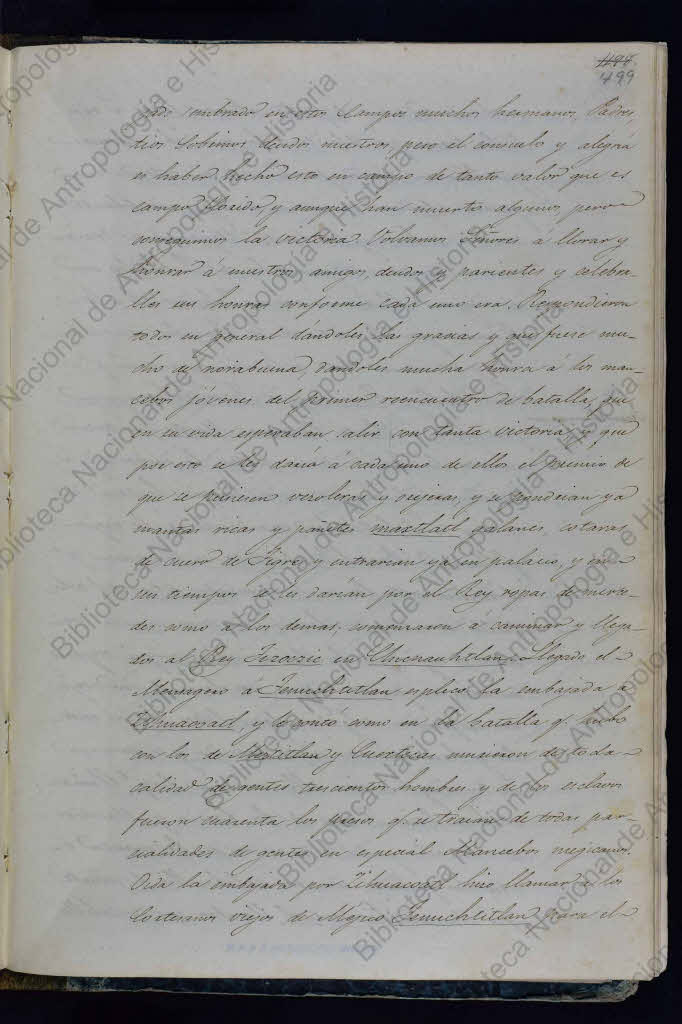 499
499
dado sembrado en estos Campos muchos hermanos, Padres,
tios Sobrinos deudos nuestros, pero el consuelo y alegria
es haber hecho esto en campo de tanto valor que es
campo florido, y aunque han muerto algunos, pero
conseguimos la victoria. Volvamos Señores á llorar y
honrar á nuestros amigos deudos y parientes y celebra-
lles sus honras conforme cada uno era. Respondieron
todos en general dandoles las gracias y que fuese mu-
cho de norabuena, dandoles mucha honra á los man-
cebos jóvenes del primer reencuentro de batalla, que
en su vida esperaban salir con tanta victoria y que
por esto se les daria á cada uno de ellos el premio de
que se pusiesen vezoleras y orejeras, y se pondrian ya
mantas ricas y pañetes maxtlatl galanes cotaras
de cuero de Tigre y entrarian ya en palacio, y en
sus tiempos se les darian por el Rey ropas de merce-
des como a los demas; comenzaron á caminar y llega-
dos al Rey Tezozic en Chicnauhtlan. Llegado el
Mensagero á Tenuchtitlan esplicó la embajada á
Zihuacoatl y le conto como en la batalla q.e hubo
con los de Meztitlan y Cuextecas murieron de toda
calidad de gentes trescientos hombres y de los esclavos
fueron cuarenta los presos q.e se traian de todas par-
cialidades de gentes en especial Mancebos mejicanos.
Oida la embajada por Zihuacoatl hizo llamar á los
Cortesanos viejos de Mejico Tenuchtitlan para el
Biblioteca Nacional de Antropología e Historia